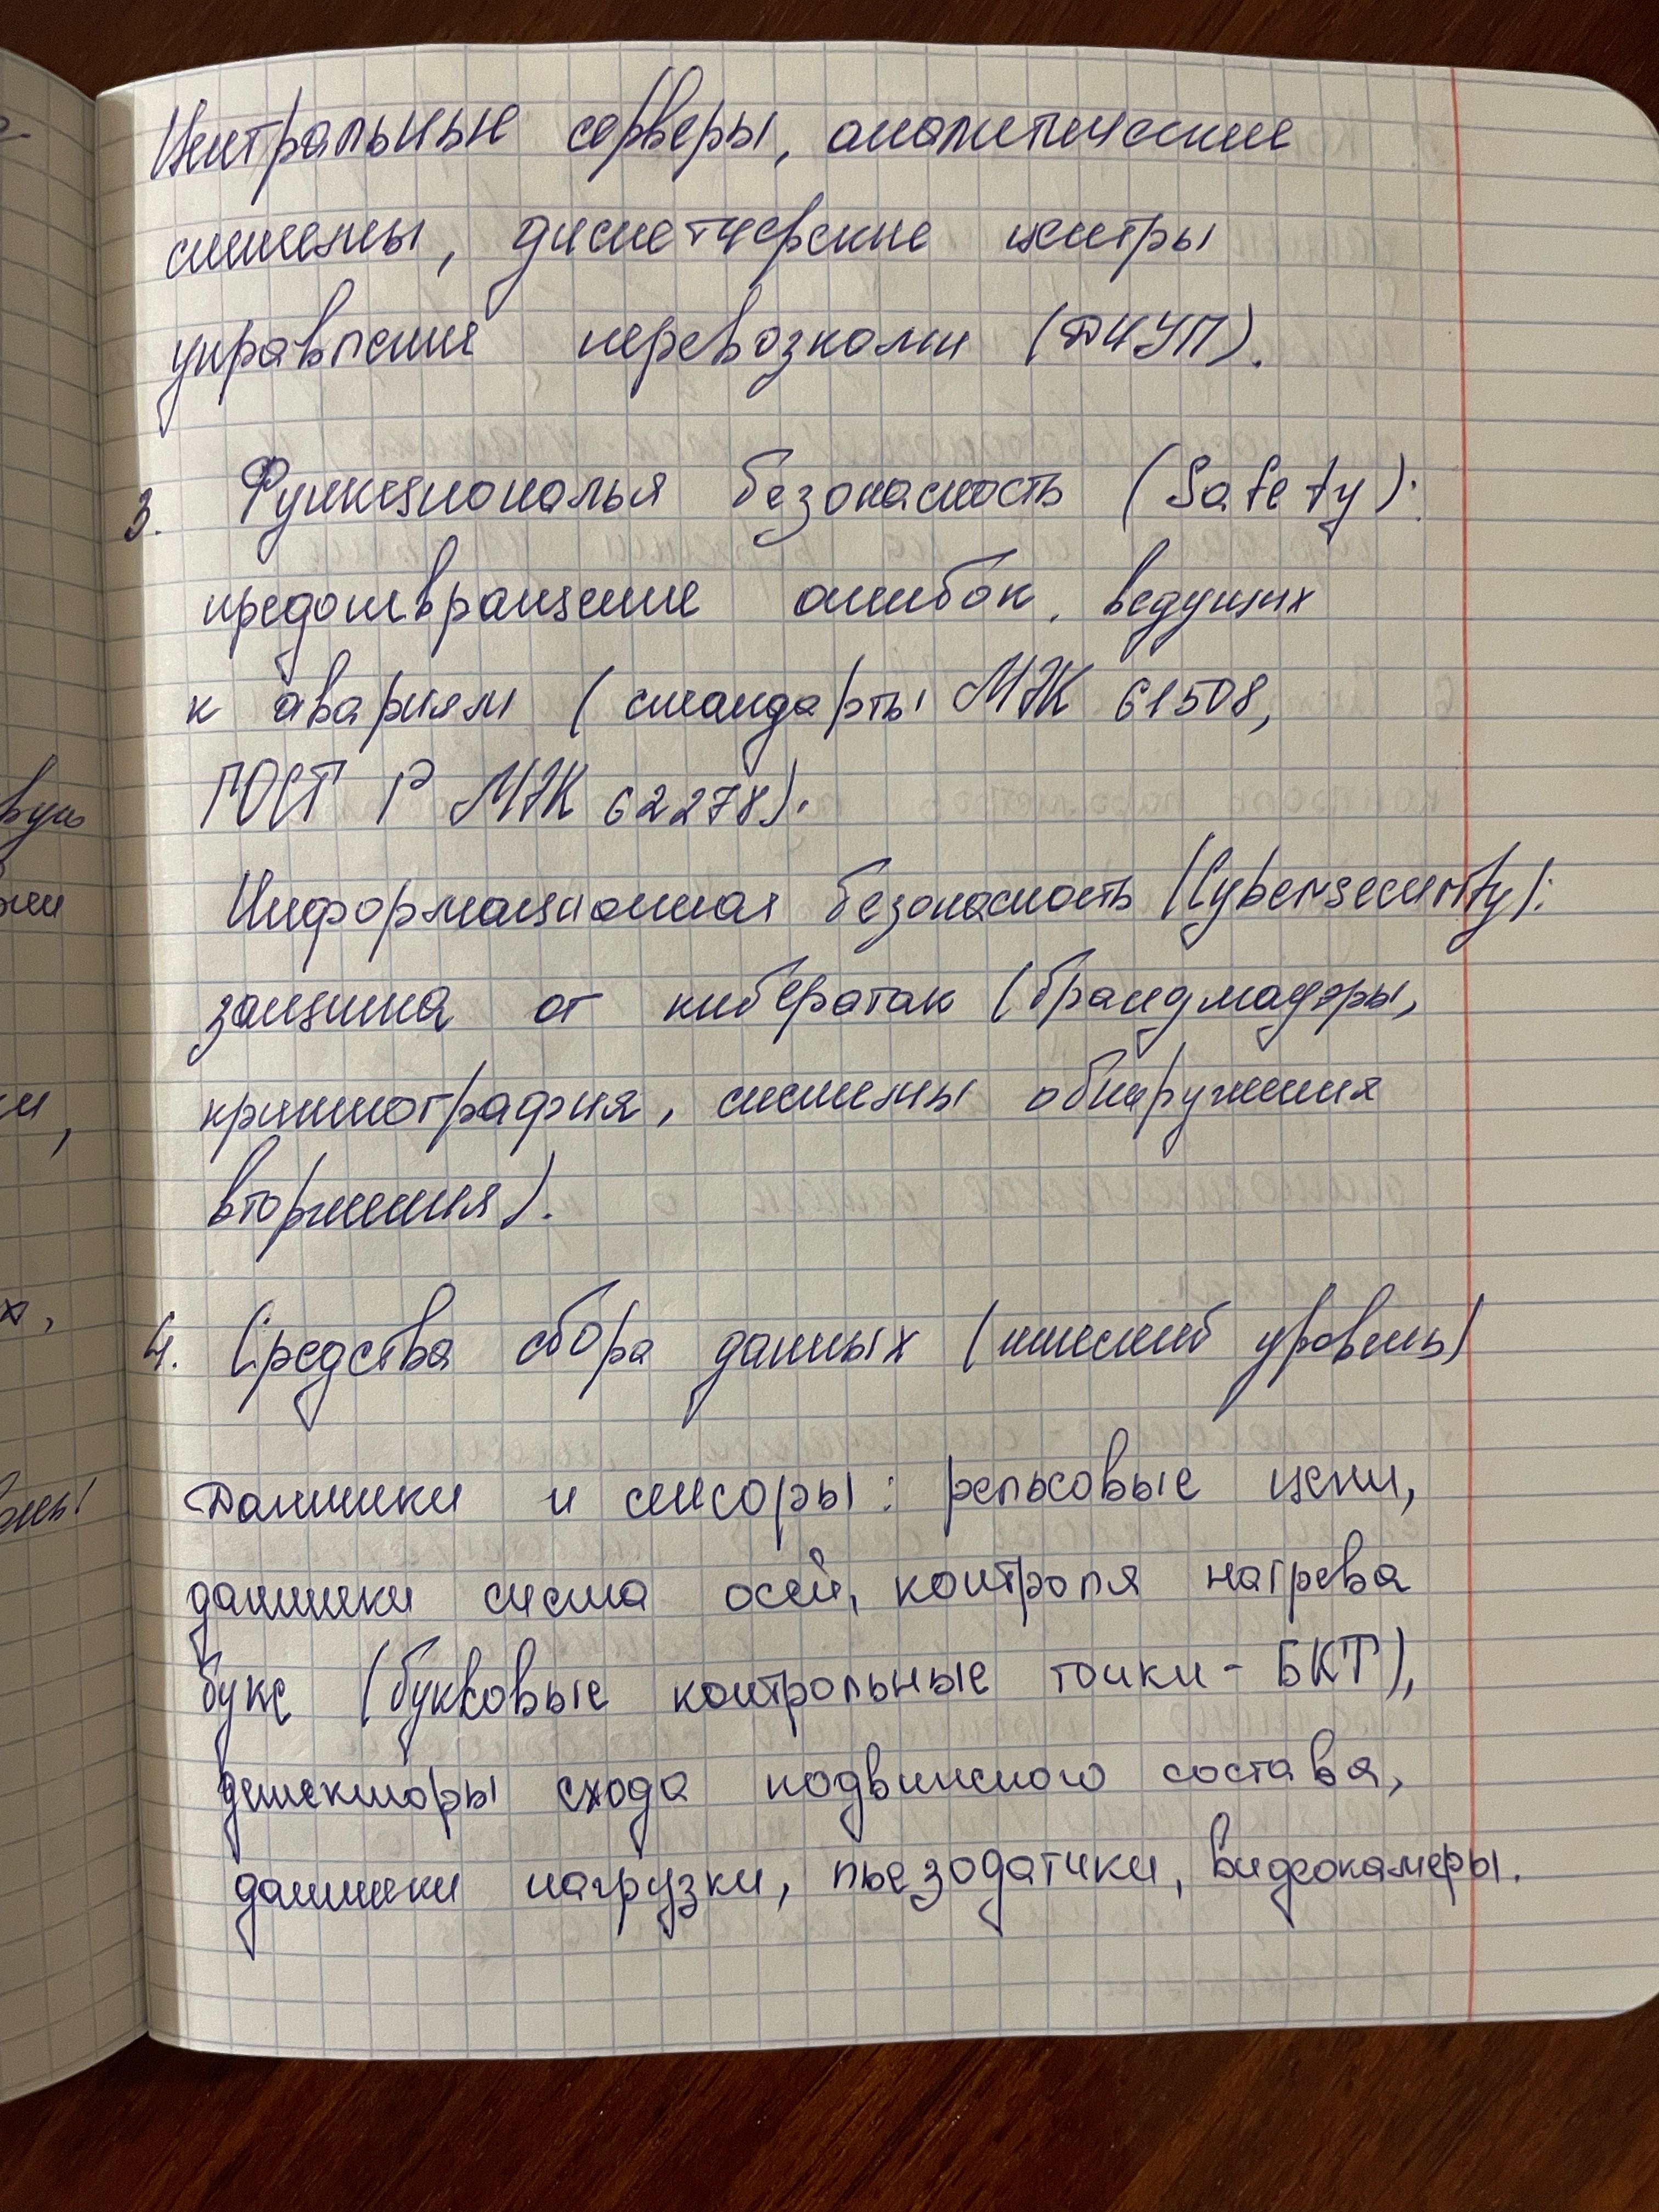 Центральные серверы, аналитические
системы, диспетчерские центры
управления перевозками (ДЦУП).
3. Функциональя безопасность (Safety):
предотвращение ошибок, ведущих
к авариям (стандарты МЭК 61508,
ГОСТ Р МЭК 62278).
Информационная безопасность (Cybersecurity):
защита от кибератак (брандмауэры,
криптография, системы обнаружения
вторжения).
4. Средства сбора данных (нижний уровень)
Датчики и сенсоры: рельсовые цепи,
датчики счета осей, контроля нагрева
букс (буксовые контрольные точки - БКТ),
детекторы схода подвижного состава,
датчики нагрузки, пьезодатчики, видеокамеры.